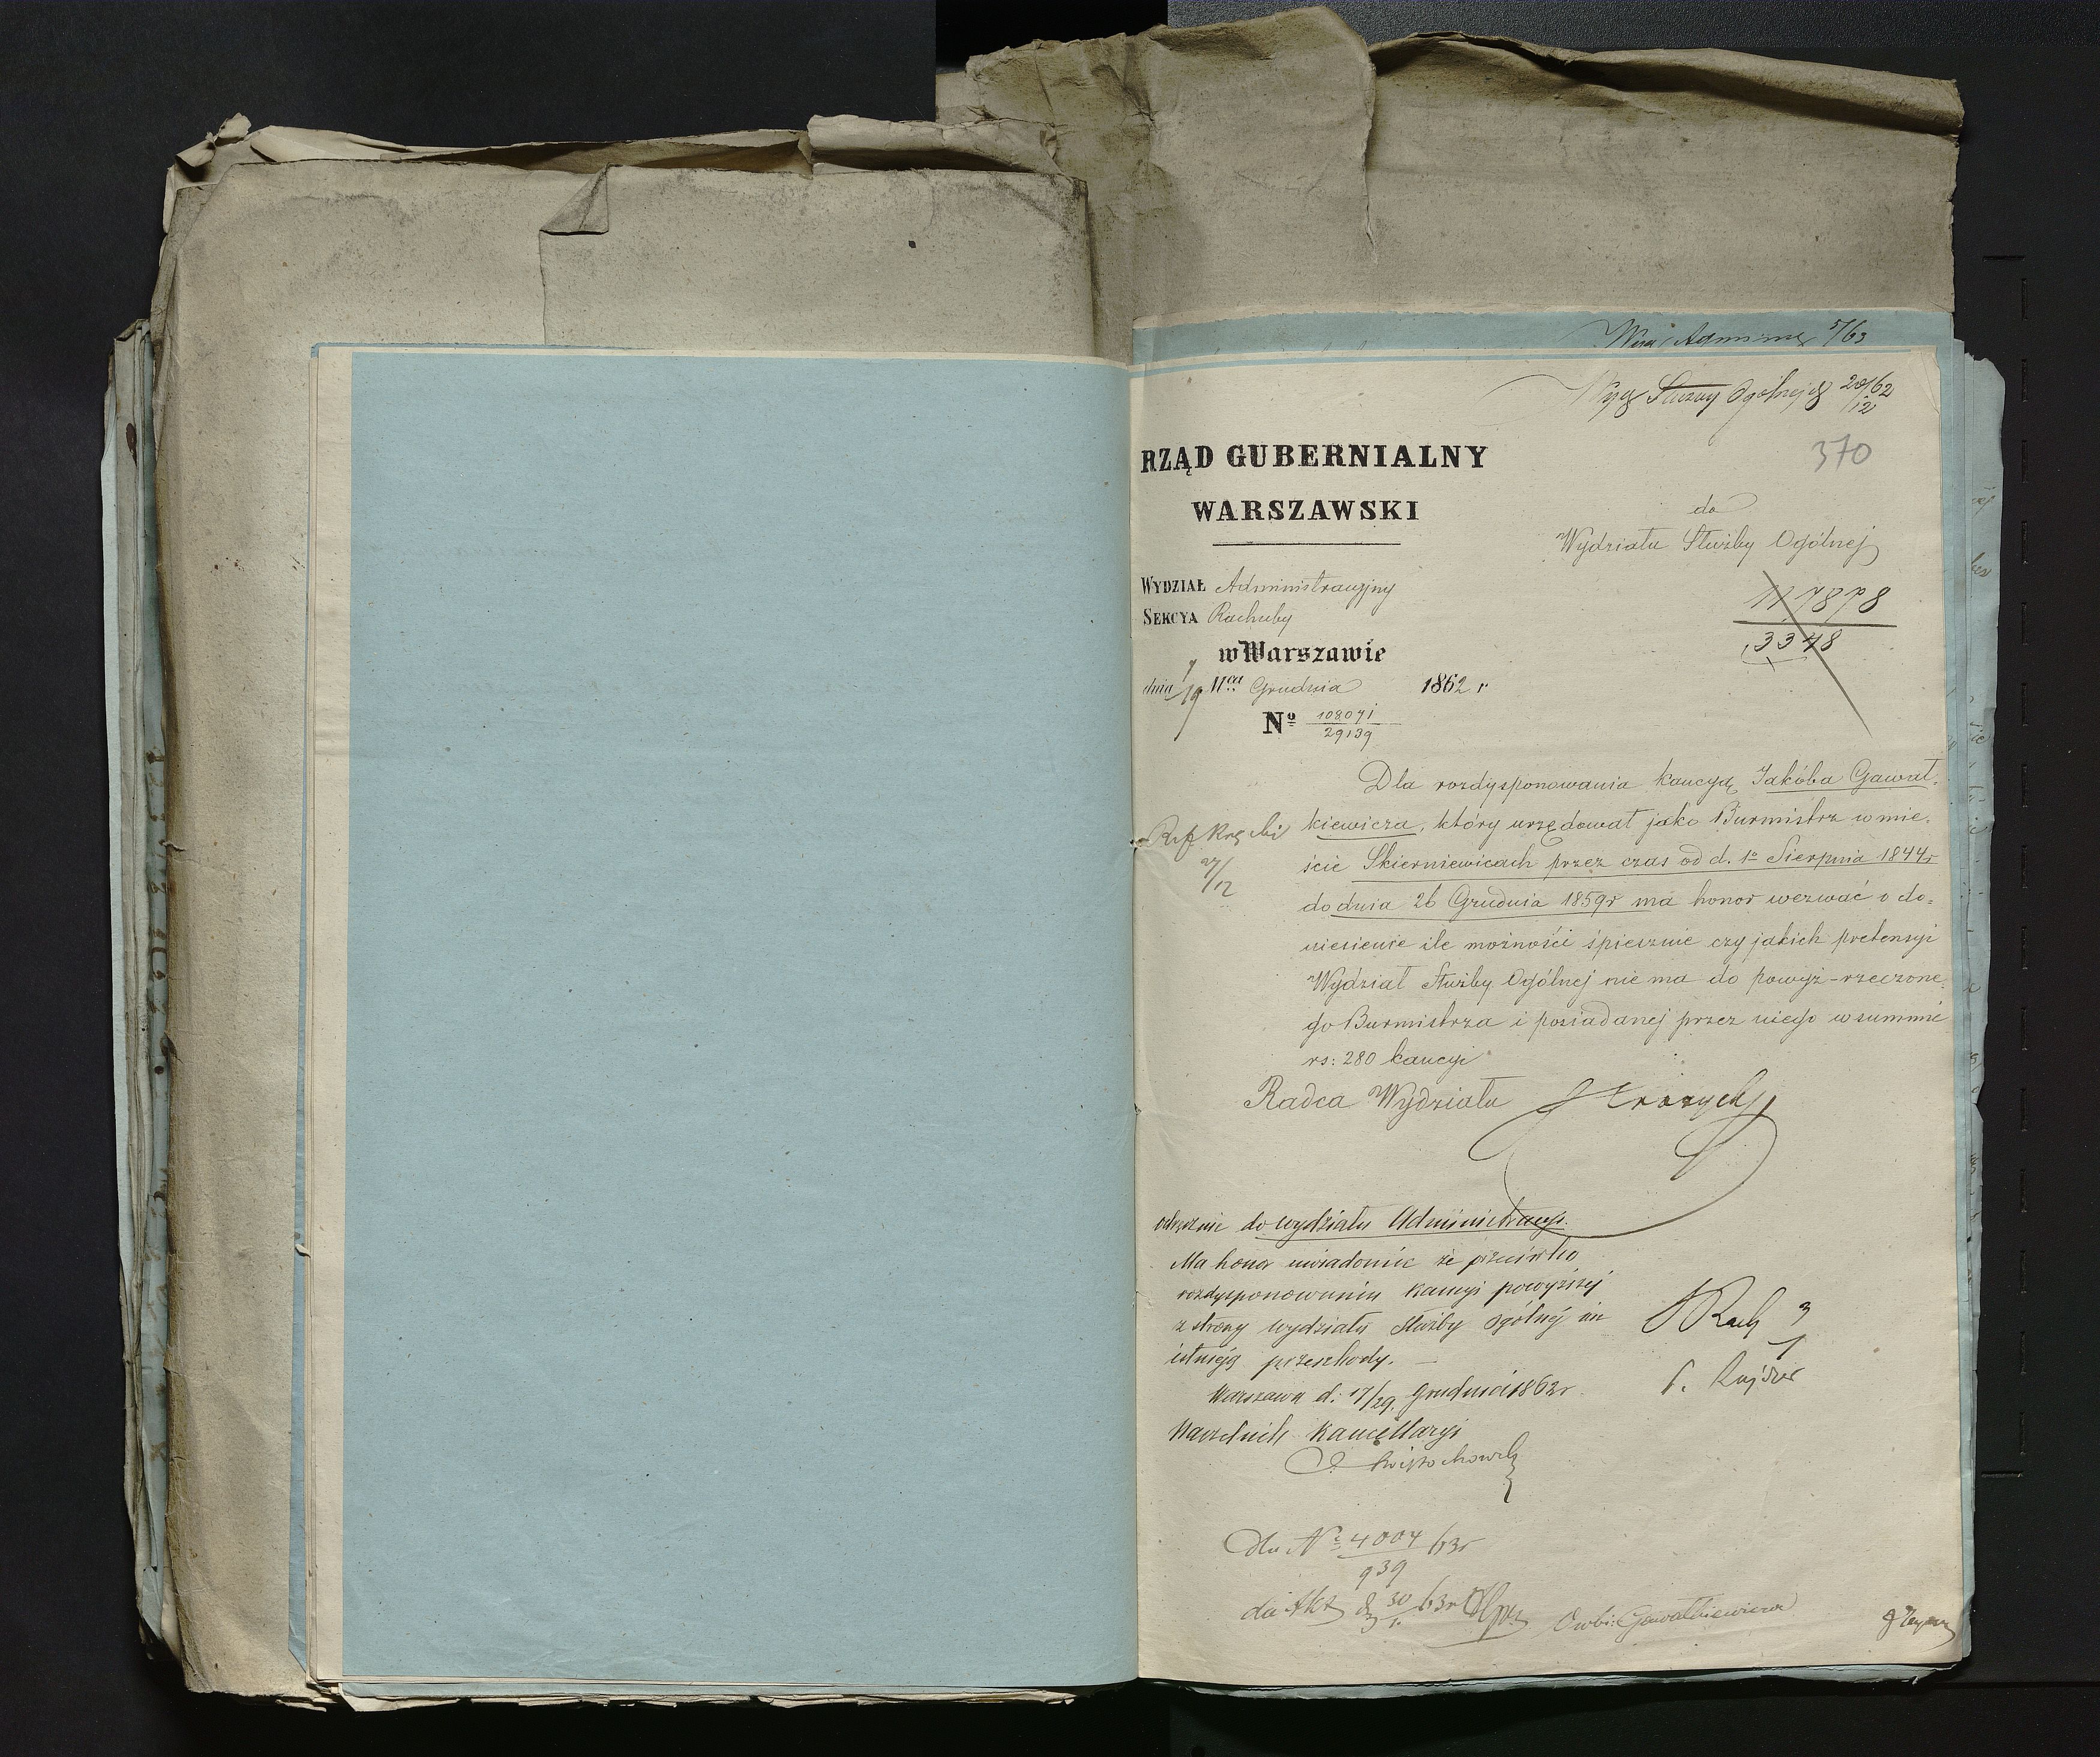 5/63
Służby Ogólnej 20/12 62
370
RZĄD GUBERNIALNY
WARSZAWSKI
do
Wydziału Służby Ogólnej
WYDZIAŁ Administracyjny
SEKCYA Rachuby
w Warszawie
dnia 7/19 Mca Grudnia 1862 r
117878
3348
No 108071
29139
Dla rozdysponowania kaucyą Jakóba Gawał-
kiewicza, który urzędował jako Burmistrz w mie-
ście Skierniewicach przez czas od d. 1o Sierpnia 1844r
do dnia 26 Grudnia 1859r ma honor wezwać o do-
niesienie ile możności śpiesznie czy jakich pretensyi
Wydział Służby Ogólnej nie ma do powyż-rzeczone-
go Burmistrza i posiadanej przez niego w summie
rs: 280 kaucyi
27/12
Radca Wydziału
odręcznie do wydziału Administracyi.
Ma honor uwiadomić że przeciwko
rozdysponowaniu kaucyi powyższej
z strony wydziału Służby Ogólnej nie
istnieją przeszkody. —
Warszawa d. 17/29 Grudnia 1862r
Naczelnik Kancellaryi
3
1
do No 4004/939 63r
do Akt 30/1 63r
Gawałkiewicza